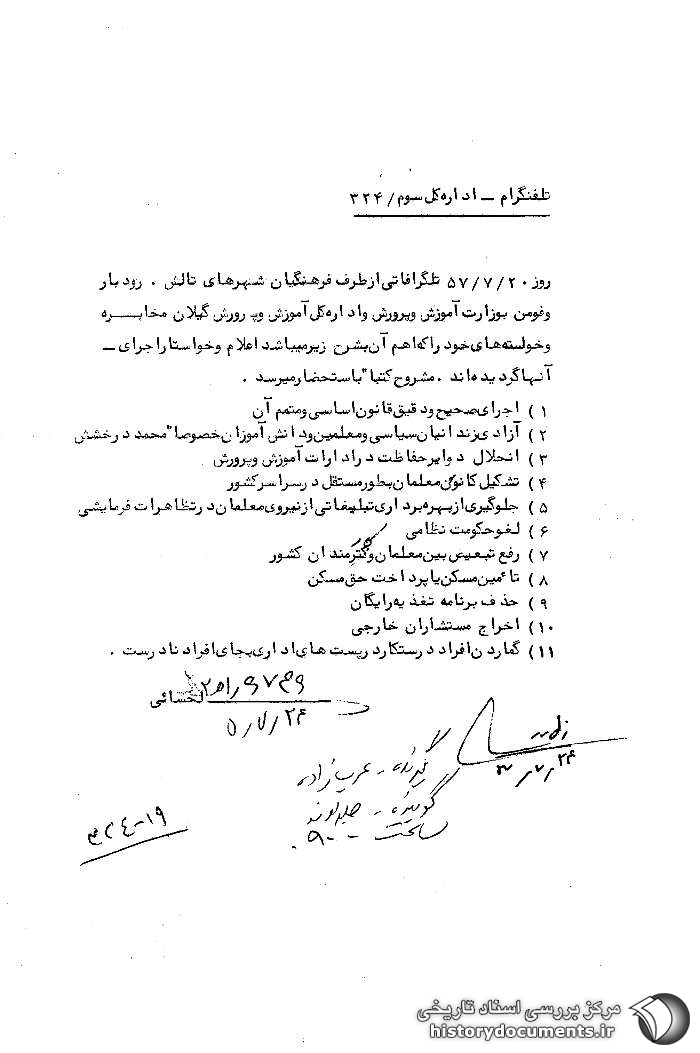 تلفنگرام ــ اداره کل سوم / ۳۲۴
روز ۵۷/۷/۲۰ تلگرافاتی از طرف فرهنگیان شهرهای تالش . رودبار
وفومن بوزارت آموزش وپرورش واداره کل آموزش وپرورش گیلان مخابـــره
وخواسته‌های خود را که اهم آن بشرح زیر میباشد اعلام وخواستار اجرای ــ
آنها گردیده‌اند . مشروح کتبا" باستحضار میرسد .
۱ ) اجرای صحیح ودقیق قانون اساسی ومتمم آن
۲ ) آزادی زندانیان سیاسی ومعلمین ودانش آموزان خصوصا" محمد درخشش
۳ ) انحلال دوایر حفاظت در ادارات آموزش وپرورش
۴ ) تشکیل کانون معلمان بطور مستقل در سراسر کشور
۵ ) جلوگیری از بهره برداری تبلیغاتی از نیروی معلمان در تظاهرات فرمایشی
۶ ) لغو حکومت نظامی
۷ ) رفع تبعیض بین معلمان و کارمندان کشور
۸ ) تائمین مسکن یا پرداخت حق مسکن
۹ ) حذف برنامه تغذیه رایگان
۱۰ ) اخراج مستشاران خارجی
۱۱ ) گماردن افراد درستکار در پست های اداری بجای افراد نادرست .
لحسائی
۵/۷/۲۴
گیرنده - عرب زاده
گوینده -
ساعت - ۹۰۰
۳۲۴-۱۹
مرکز بررسی اسناد تاریخی
historydocuments.ir